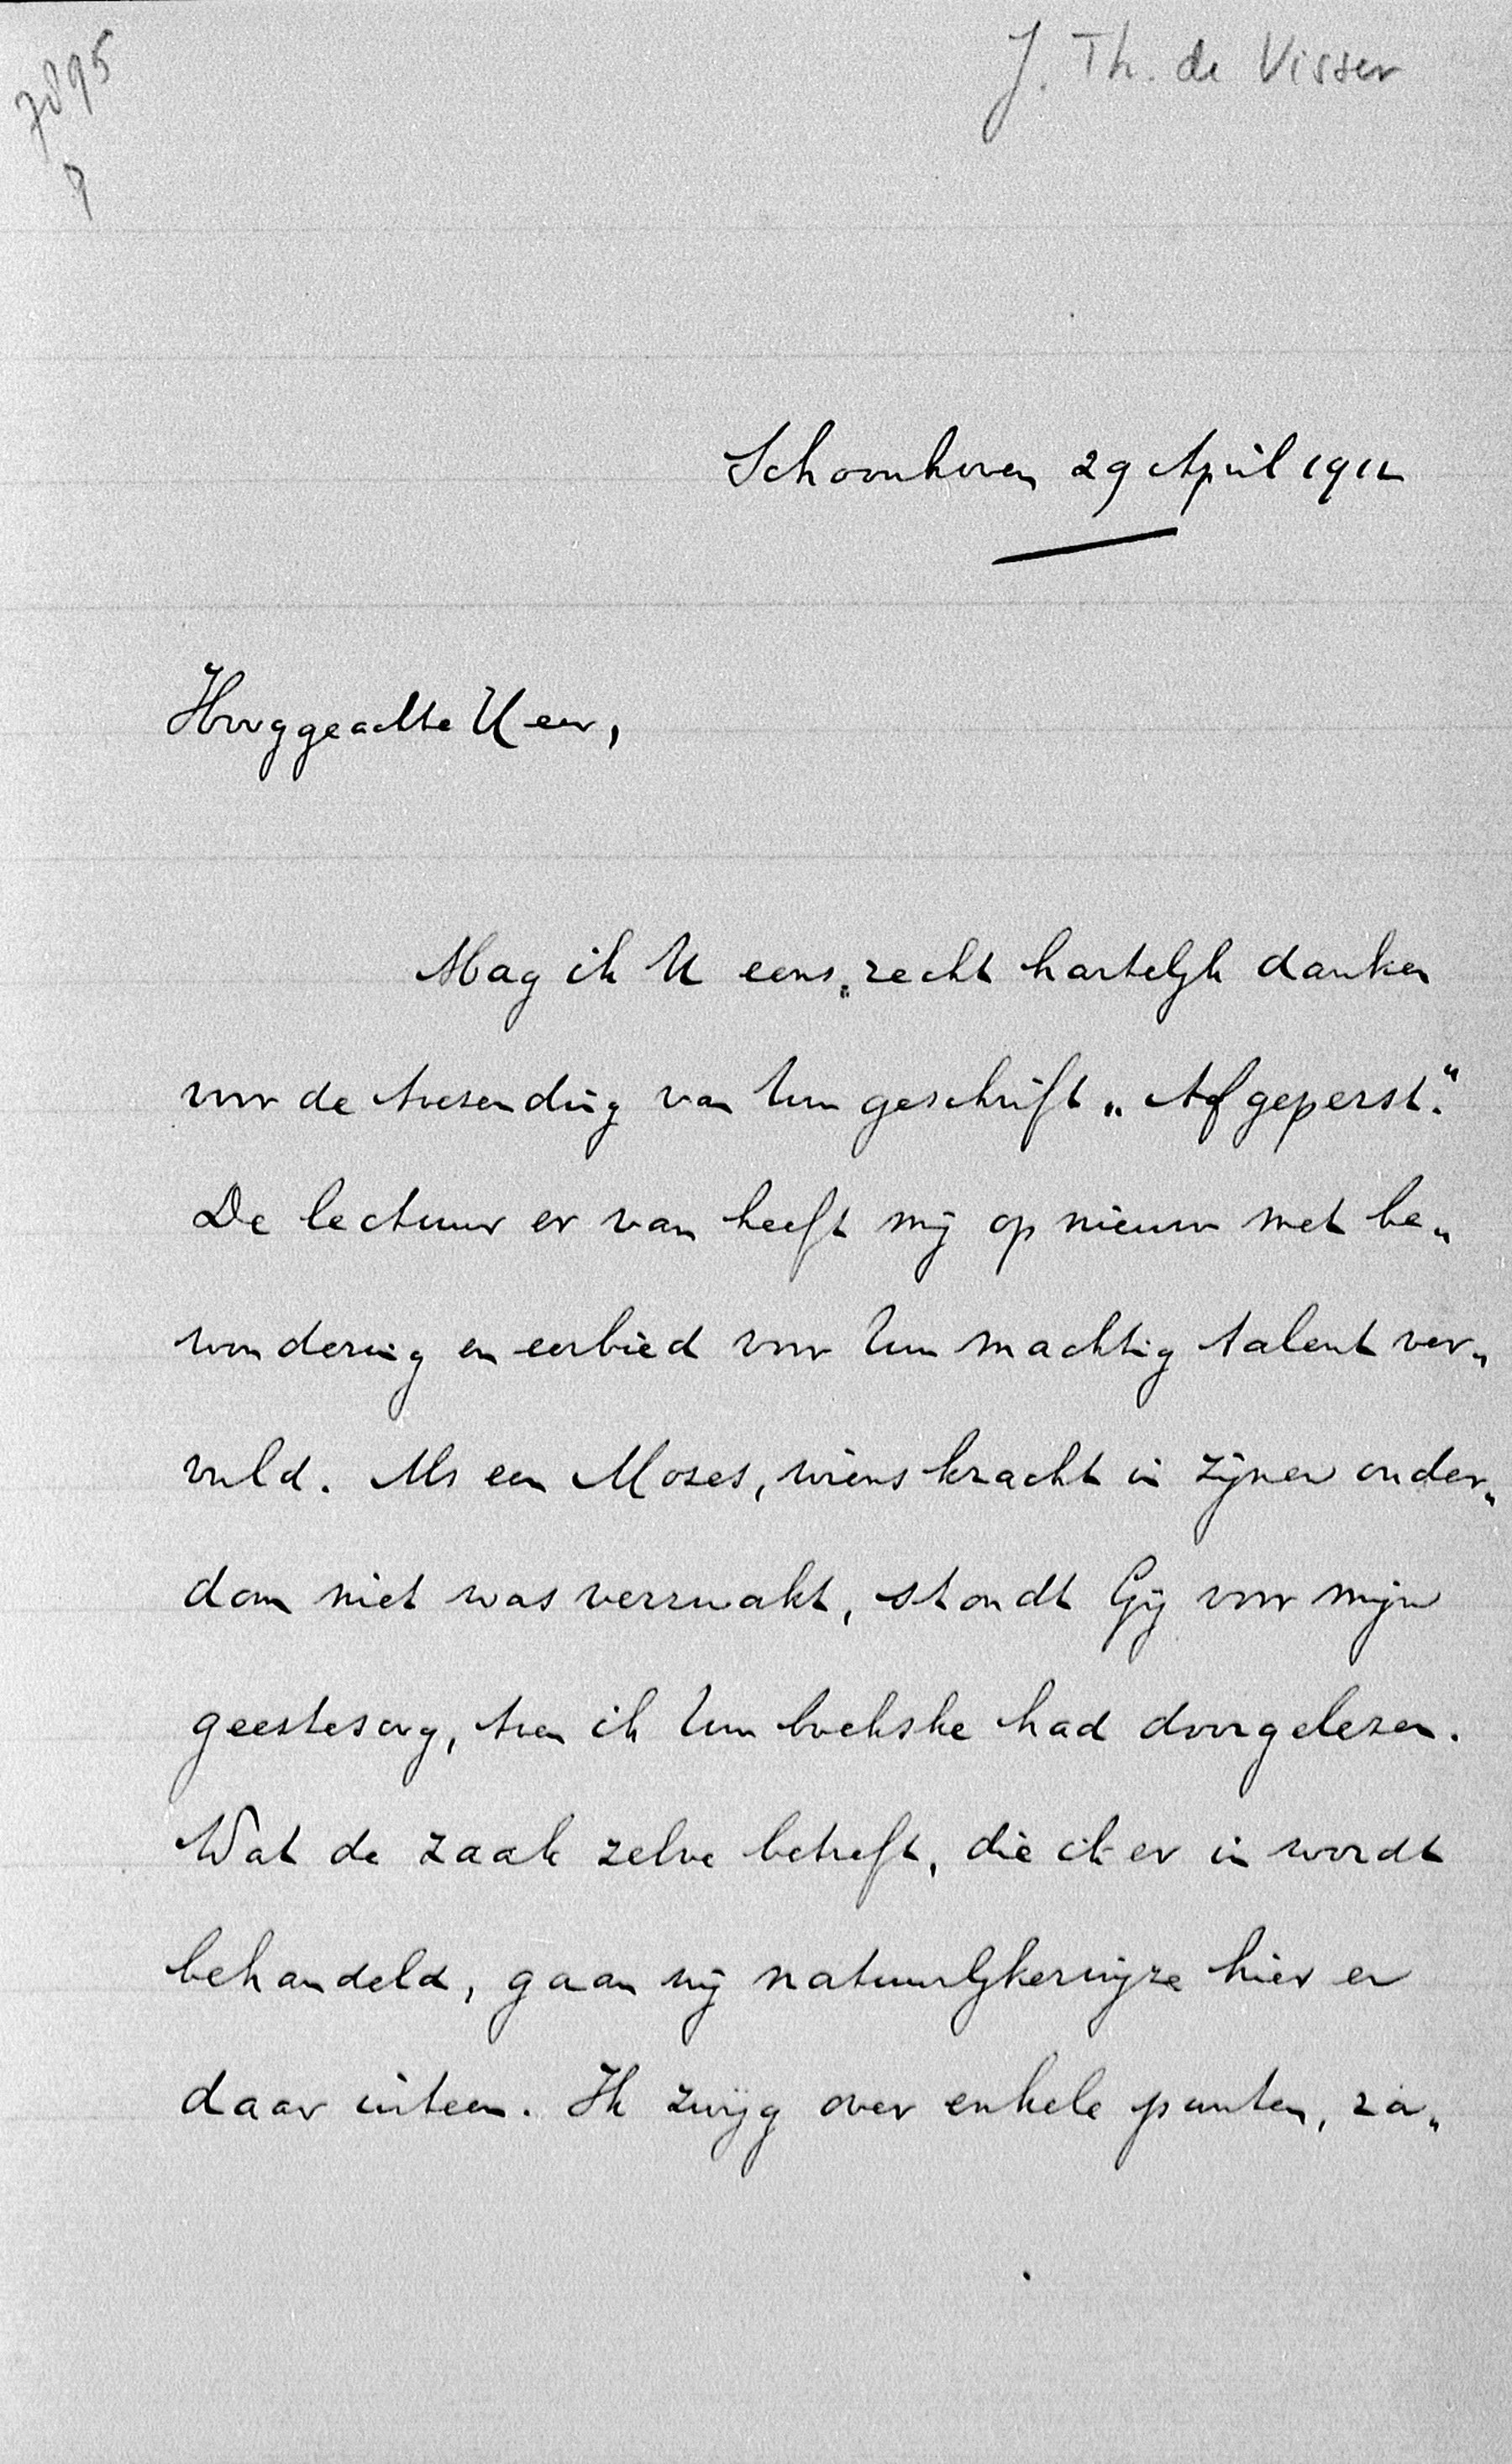 7895
J. Th. de Visser
Schoonhoven 29 April 1912
Hooggeachte Heer,
Mag ik U eens recht hartelijk danken
voor de toezending van Uw geschrift „Afgeperst."
De lectuur er van heeft mij op nieuw met be„
wondering en eerbied voor Uw machtig talent ver„
vuld. Als een Mozes, wiens kracht in zijnen ouder„
dom niet was verzwakt, stondt Gij voor mijn
geestesoog, toen ik Uw boekske had doorgelezen.
Wat de zaak zelve betreft, die er in wordt
behandeld, gaan wij natuurlijkerwijze hier en
daar uiteen. Ik zwijg over enkele punten, zo„